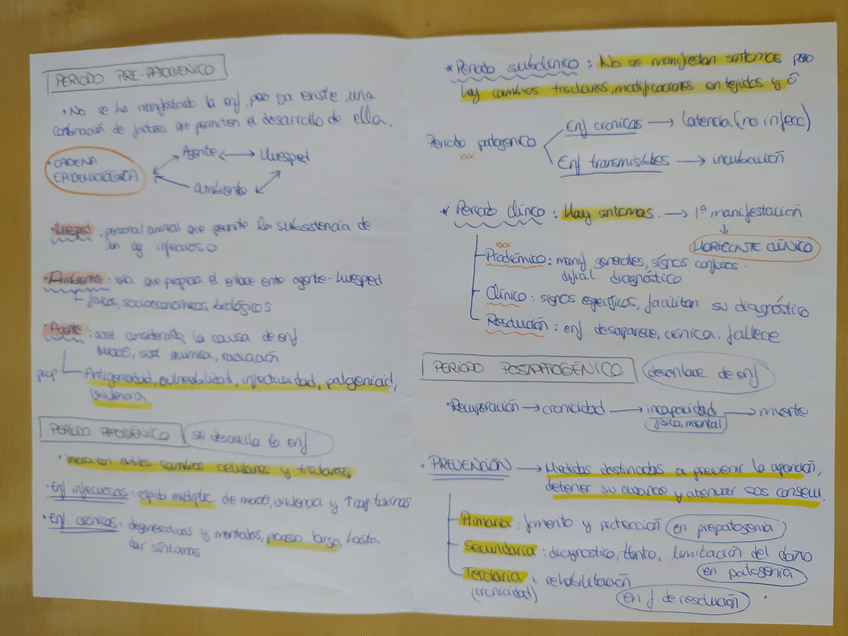 PERIODO PRE-PATOGENICO
• No se ha manifestado la enf, pero ya existe una
combinación de factores que permiten el desarrollo de ella.
• CADENA
EPIDEMIOLÓGICA
Agente
Huesped
ambiente
Huesped: persona/animal que permite la subsistencia de
un ag infeccioso
Ambiente: que propicia el enlace ente agente-huesped.
físicos, socioeconomicos, biológicos
Agente: considerada la causa de enf
quimica, radiación
prop
Antigenicidad, vulnerabilidad, infectividad, patogenicidad,
virulencia
PERIODO PATOGÉNICO
se desarrolla la enf
cambios celulares y tisulares
• Enf infecciosas: rápida multiplic de microo, virulencia y ↑ cap toxinas
• Enf crónicas: degenerativas y mentales, proceso largo, hasta
dar síntomas
* Periodo subclínico: No se manifiestan síntomas pero
hay cambios tisulares, modificaciones en tejidos y
Periodo patogenico
Enf cronicas → latencia (no infecc)
Enf transmisibles → incubación
* Periodo clínico: Hay sintomas. → 1ª manifestación
HORIZONTE CLÍNICO
Prodrómico: manif generales, signos confusos.
dificil diagnóstico
Clínico: signos específicos, facilitan su diagnóstico
Resolución: enf desaparece, crónica, fallece
PERIODO POSTPATOGÉNICO
desenlace de enf
• Recuperación → cronicidad → incapacidad → muerte
física, mental
• PREVENCIÓN → Medidas destinadas a prevenir la aparición,
detener su avance y atenuar sus consecu.
Primaria: fomento y protección en prepatogenia
Secundaria: diagnostico, ttmto, limitación del daño
en patogenia
Terciaria: rehabilitación
(cronicidad)
en f de resolución